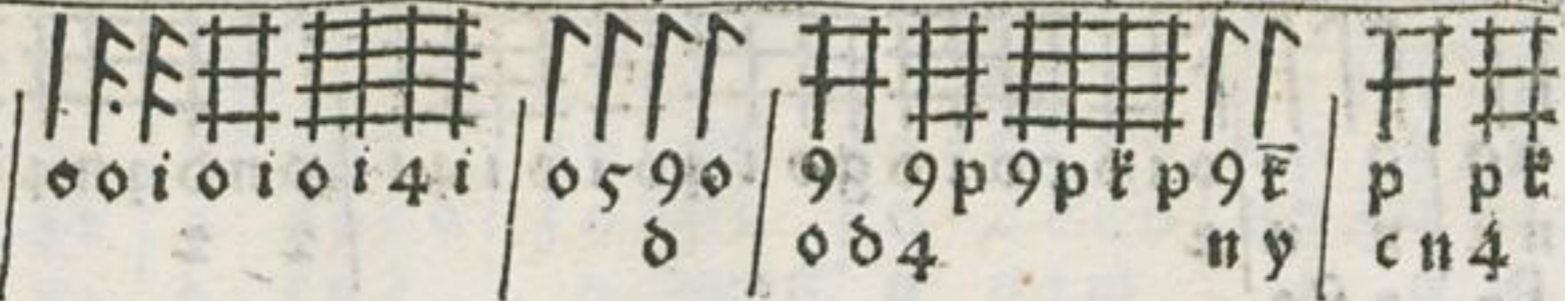 o o i o i o i 4 i | o 5 9 o | 9 9 p 9 p ꝛ p 9 | p p
d | o d 4 n y | c n 4